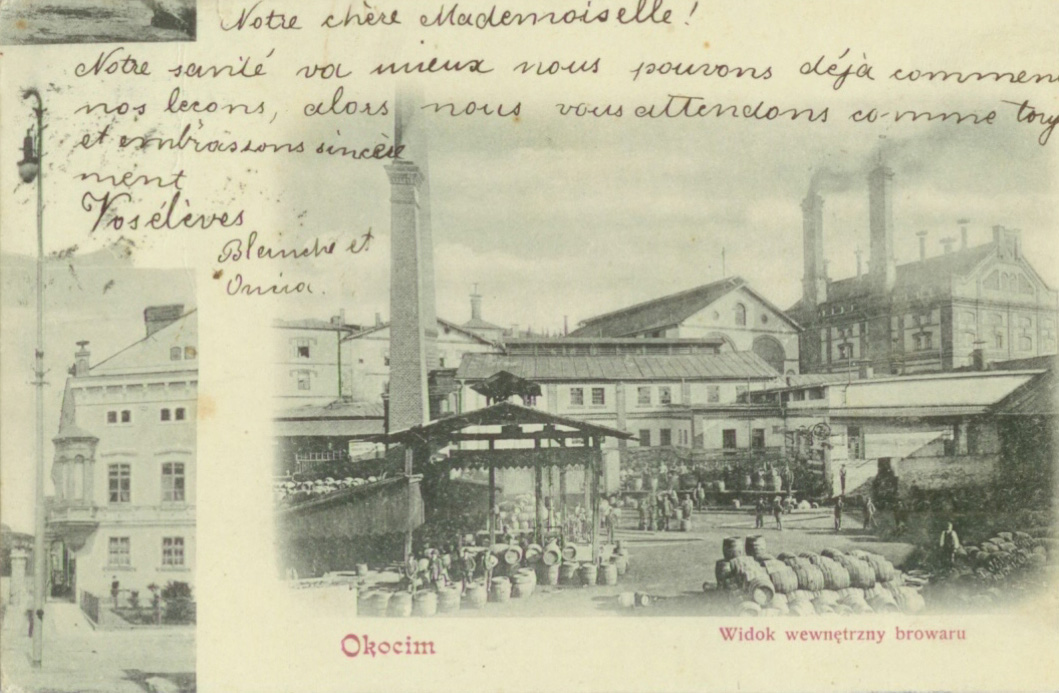 Notre chère Mademoiselle!
Notre santé va mieux nous pouvons déjà commen
nos leçons, alors nous vous attendons comme
et embrassons sincère
ment
Vos élèves
Blanche et
Okocim
Widok wewnętrzny browaru